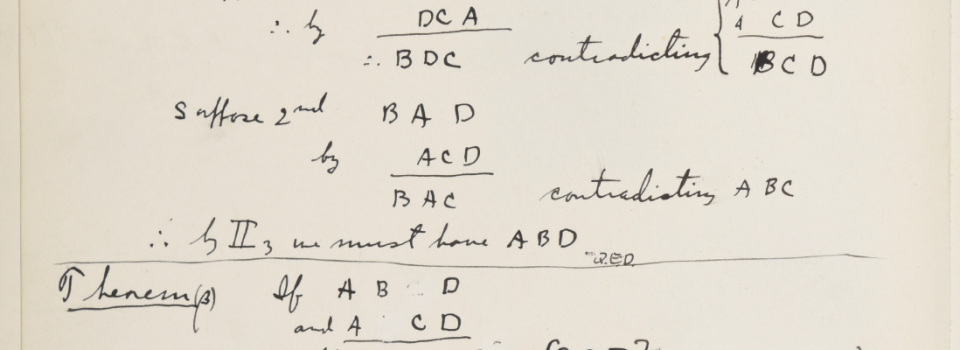 ∴ by DCA A CD
∴ BDC contradicting BCD
Suppose 2nd BAD
by ACD
BAC contradicting ABC
∴ by II3 we must have ABD
Q.E.D.
Theorem (β) If A B D
and A CD